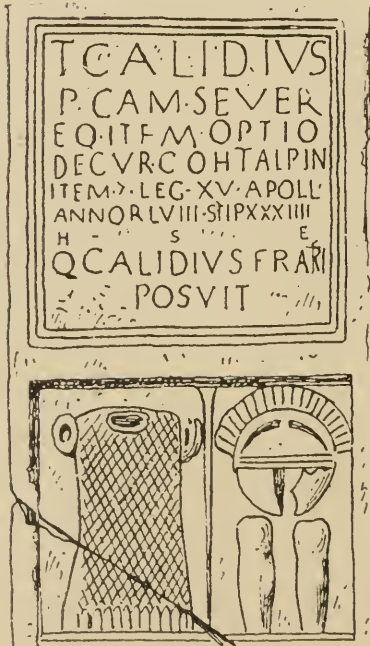 T CALIDIVS
P·CAM·SEVER
EQ·ITEM·OPTIO
DECVR·COHTALPIN
ITEM·7·LEG·XV·APOLL·
ANNOR LVIII·STIPXXXIIII
H S E
Q CALIDIVS FRATRI
POSVIT